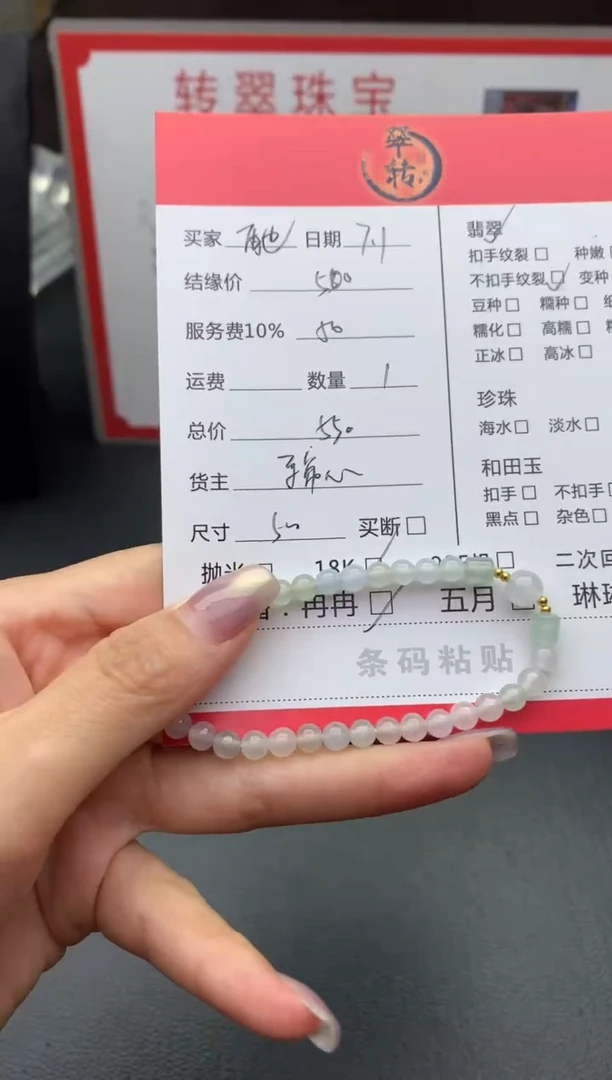 转翠珠宝
翠转
买家 日期 7.1
结缘价 500
服务费10% 50
运费 数量 1
总价 550
货主
尺寸 50 买断□
抛光□ 18K□
冉冉□ 五月□ 琳
条码粘贴
翡翠
扣手纹裂□ 种嫩□
不扣手纹裂□ 变种
豆种□ 糯种□
糯化□ 高糯□
正冰□ 高冰□
珍珠
海水□ 淡水□
和田玉
扣手□ 不扣手□
黑点□ 杂色□
二次回